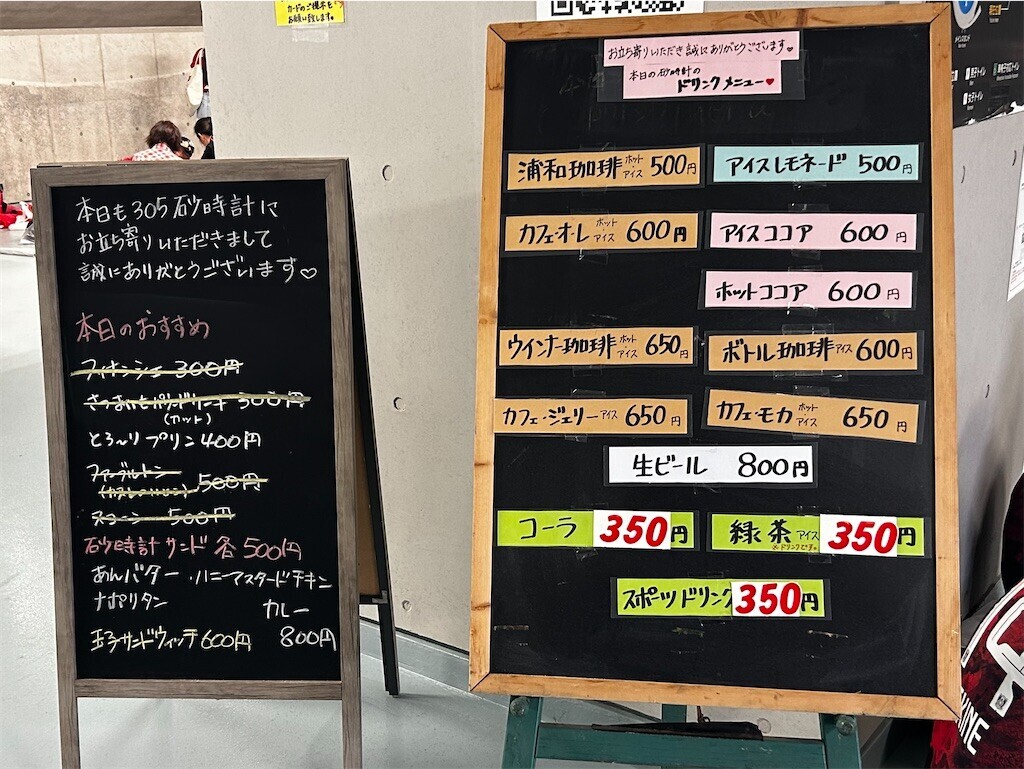 カードのご提示を
お願い致します。
本日も305砂時計に
お立ち寄りいただきまして
誠にありがとうございます♡
本日のおすすめ
フィナンシェ 300円
さつまいもパウンドケーキ 300円
(カット)
とろ〜りプリン 400円
500円
スコーン 500円
砂時計サンド 各500円
あんバター・ハニーマスタードチキン
ナポリタン
カレー
800円
玉子サンドウィッチ 600円
お立ち寄りいただき誠にありがとうございます♥
本日の砂時計の
ドリンクメニュー♥
浦和珈琲 ホット・アイス 500円
アイスレモネード 500円
カフェ・オ・レ ホット・アイス 600円
アイスココア 600円
ホットココア 600円
ウインナー珈琲 ホット・アイス 650円
ボトル珈琲 アイス 600円
カフェ・ジェリー アイス 650円
カフェ・モカ ホット・アイス 650円
生ビール 800円
コーラ 350円
緑茶 アイス 350円
スポーツドリンク 350円
男子トイレ
女子トイレ